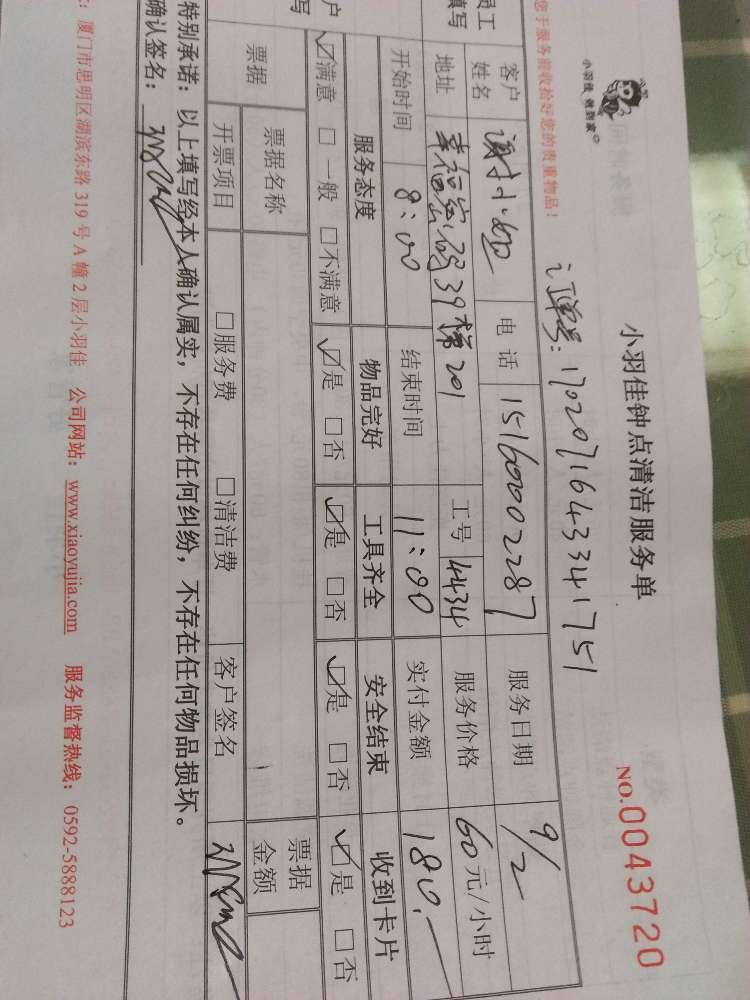 小羽佳 收到家
小羽佳钟点清洁服务单
NO.0043720
您于服务前收拾好您的贵重物品!
订单号:170207164334 1751
客户姓名 谢小姐 电话 15160002287 服务日期 9/2
地址 39梯201 工号 4434 服务价格 60元/小时
开始时间 8:00 结束时间 11:00 实付金额 180.—
服务态度 物品完好 工具齐全 安全结束 收到卡片
☑满意 □一般 □不满意 ☑是 □否 ☑是 □否 ☑是 □否 ☑是 □否
票据 票据名称 票据金额
开票项目 □服务费 □清洁费 客户签名
特别承诺:以上填写经本人确认属实,不存在任何纠纷,不存在任何物品损坏。
确认签名:
厦门市思明区湖滨东路319号A幢2层小羽佳 公司网站:www.xiaoyujia.com 服务监督热线:0592-5888123